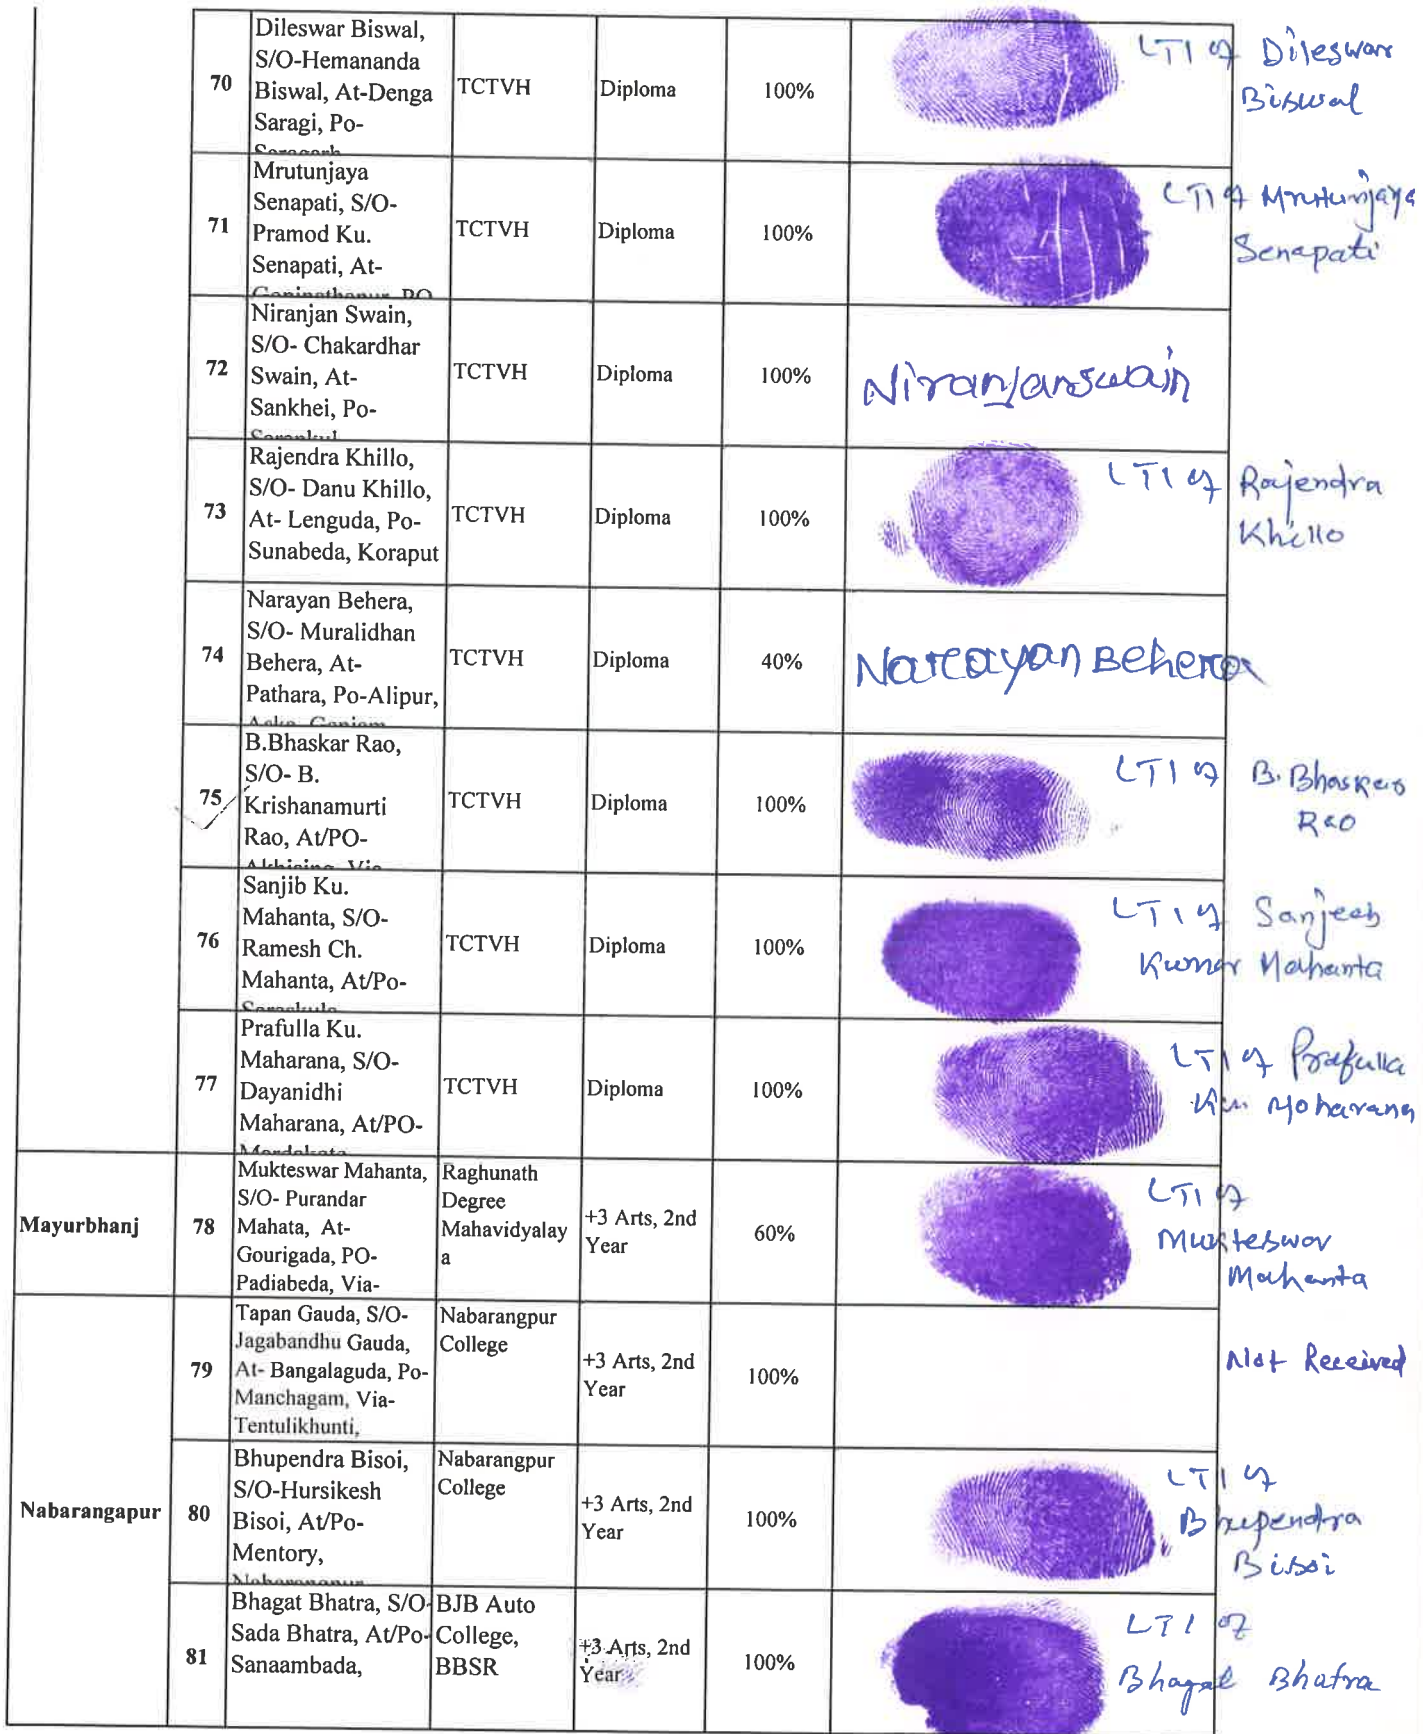 70
Dileswar Biswal,
S/O-Hemananda
Biswal, At-Denga
Saragi, Po-
TCTVH
Diploma
100%
LTI of Dileswar
Biswal
71
Mrutunjaya
Senapati, S/O-
Pramod Ku.
Senapati, At-
TCTVH
Diploma
100%
LTI of Mrutunjaya
Senapati
72
Niranjan Swain,
S/O- Chakardhar
Swain, At-
Sankhei, Po-
TCTVH
Diploma
100%
Niranjanswain
73
Rajendra Khillo,
S/O- Danu Khillo,
At- Lenguda, Po-
Sunabeda, Koraput
TCTVH
Diploma
100%
LTI of Rajendra
Khillo
74
Narayan Behera,
S/O- Muralidhan
Behera, At-
Pathara, Po-Alipur,
TCTVH
Diploma
40%
Narayan Behera
75
B.Bhaskar Rao,
S/O- B.
Krishanamurti
Rao, At/PO-
TCTVH
Diploma
100%
LTI of B. Bhaskar
Rao
76
Sanjib Ku.
Mahanta, S/O-
Ramesh Ch.
Mahanta, At/Po-
TCTVH
Diploma
100%
LTI of Sanjeeb
Kumar Mahanta
77
Prafulla Ku.
Maharana, S/O-
Dayanidhi
Maharana, At/PO-
TCTVH
Diploma
100%
LTI of Prafulla
Ku. Moharana
Mayurbhanj
78
Mukteswar Mahanta,
S/O- Purandar
Mahata, At-
Gourigada, PO-
Padiabeda, Via-
Raghunath
Degree
Mahavidyalay
a
+3 Arts, 2nd
Year
60%
LTI of
Mukteswar
Mahanta
Nabarangapur
79
Tapan Gauda, S/O-
Jagabandhu Gauda,
At- Bangalaguda, Po-
Manchagam, Via-
Tentulikhunti,
Nabarangpur
College
+3 Arts, 2nd
Year
100%
Not Received
80
Bhupendra Bisoi,
S/O-Hursikesh
Bisoi, At/Po-
Mentory,
Nabarangpur
College
+3 Arts, 2nd
Year
100%
LTI of
Bhupendra
Bisoi
81
Bhagat Bhatra, S/O-
Sada Bhatra, At/Po-
Sanaambada,
BJB Auto
College,
BBSR
+3 Arts, 2nd
Year
100%
LTI of
Bhagat Bhatra